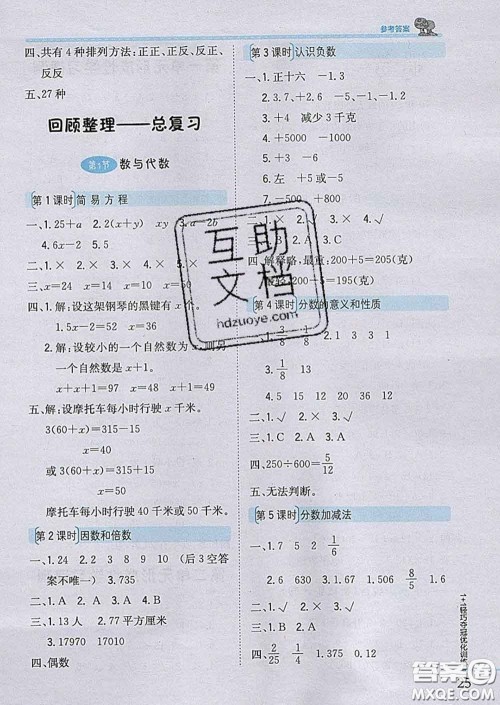 参考答案
四、共有4种排列方法：正正、正反、反正、
反反
五、27种
回顾整理——总复习
第1节 数与代数
第1课时 简易方程
一、1.25+a 2.2(x+y) xy 3.a 2b
4.6x-2 5.5
四、1.解：设这架钢琴的黑键有x个。
1.5x-2=52 x=36
2.解：设较小的一个自然数为x，则另
一个自然数是x+1。
x+x+1=97 x=48 x+1=49
五、解：设摩托车每小时行驶x千米。
3(60+x)=315-15
x=40
或3(60+x)=315+15
x=50
摩托车每小时行驶40千米或50千米。
第2课时 因数和倍数
一、1.24 2.2 3 8 9 10 (后3空答
案不唯一) 3.735
二、1.C 2.B 3.A
三、1.13人 2.77平方厘米
3.17970 17010
四、偶数
第3课时 认识负数
一、1.正十六 -1.3
2.4 -1
3.+4 减少3千克
4.-2 +2
5.+280 -40
6.左 2 右 4
二、1.× 2.× 3.× 4.√ 5.√
三、1.D
四、解释略；最重：200+5=205(克)
200-5=195(克)
第4课时 分数的意义和性质
3.1/8 13
二、1.√ 2.× 3.× 4.√
三、1.C 2.A 3.B
四、250÷600=5/12
五、无法判断。
第5课时 分数加减法
一、1.7 5 2 1/6
2.6 630 3.1.5 1.506 8/5 1.6
二、1.√ 2.√ 3.×
三、1.C 2.B
四、2/25 1/4 +0.4 -0.12
1+1轻巧夺冠优化训练
25
互助
文档
hdzuoye.com
答案圈
MXQE.COM